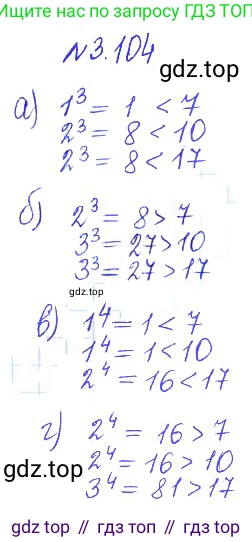 Ищите нас по запросу
ГДЗ ТОП
№3.104
gdz.top
а) 1³ = 1 < 7
2³ = 8 < 10
2³ = 8 < 17
б) 2³ = 8 > 7
3³ = 27 > 10
3³ = 27 > 17
gdz.top
в) 1⁴ = 1 < 7
1⁴ = 1 < 10
2⁴ = 16 < 17
г) 2⁴ = 16 > 7
gdz.top
2⁴ = 16 > 10
3⁴ = 81 > 17
gdz.top // гдз.топ // gdz.top